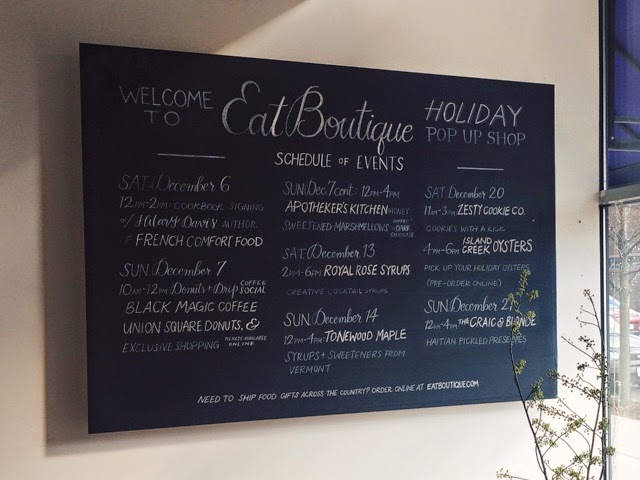 WELCOME TO Eat Boutique HOLIDAY POP UP SHOP
SCHEDULE OF EVENTS
SAT. December 6
12PM-2PM COOKBOOK SIGNING
W/ Hilary Davis AUTHOR
OF FRENCH COMFORT FOOD
SUN. December 7
10AM-12PM Donuts + Drip COFFEE SOCIAL
BLACK MAGIC COFFEE
UNION SQUARE DONUTS, &
EXCLUSIVE SHOPPING TICKETS AVAILABLE ONLINE
SUN. Dec 7 cont. 12PM-4PM
APOTHEKER'S KITCHEN HONEY
SWEETENED MARSHMALLOWS + DARK CHOCOLATE
SAT. December 13
2PM-6PM ROYAL ROSE SYRUPS
CREATIVE COCKTAIL SYRUPS
SUN. December 14
12PM-4PM TONEWOOD MAPLE
SYRUPS + SWEETENERS FROM
VERMONT
SAT. December 20
11AM-3PM ZESTY COOKIE CO.
COOKIES WITH A KICK
4PM-6PM ISLAND CREEK OYSTERS
PICK UP YOUR HOLIDAY OYSTERS
(PRE-ORDER ONLINE)
SUN. December
12PM-4PM THE CRAIG & BLONDE
HAITIAN PICKLED PRESERVES
NEED TO SHIP FOOD GIFTS ACROSS THE COUNTRY? ORDER ONLINE AT EATBOUTIQUE.COM